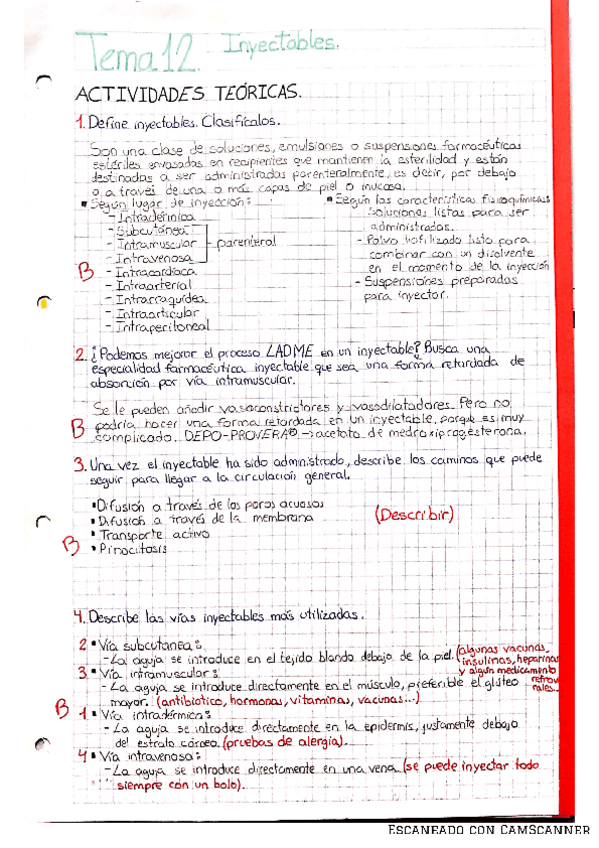 Tema 12. Inyectables.
ACTIVIDADES TEÓRICAS.
1. Define inyectables. Clasifícalos.
Son una clase de soluciones, emulsiones o suspensiones farmacéuticas
estériles envasadas en recipientes que mantienen la esterilidad y están
destinadas a ser administradas parenteralmente, es decir, por debajo
o a través de una o más capas de piel o mucosa.
Según lugar de inyección:
- Intradérmica
- Subcutánea
- Intramuscular
- Intravenosa
parenteral
B
- Intracardíaca
- Intraarterial
- Intrarraquídea
- Intraarticular
- Intraperitoneal
Según las características fisicoquímicas
Soluciones listas para ser
administradas.
- Polvo liofilizado listo para
combinar con un disolvente
en el momento de la inyección
- Suspensiones preparadas
para inyector.
2. ¿Podemos mejorar el proceso LADME en un inyectable? Busca una
especialidad farmacéutica inyectable que sea una forma retardada de
absorción por vía intramuscular.
Se le pueden añadir vasoconstrictores y vasodilatadores. Pero no
podría hacer una forma retardada en un inyectable, porque es muy
B complicado. DEPO-PROVERA® → acetato de medroxiprogesterona.
3. Una vez el inyectable ha sido administrado, describe los caminos que puede
seguir para llegar a la circulación general.
• Difusión a través de los poros acuosos
• Difusión a través de la membrana (Describir)
• Transporte activo
B • Pinocitosis
4. Describe las vías inyectables más utilizadas.
2 • Vía subcutanea:
- La aguja se introduce en el tejido blando debajo de la piel. (algunas vacunas,
insulinas, heparinas
y algún medicamento
retrovirales...
3. • Vía intramuscular:
- La aguja se introduce directamente en el músculo, preferible el glúteo
mayor. (antibiótico, hormonas, vitaminas, vacunas...)
B 1. • Vía intradérmica:
- La aguja se introduce directamente en la epidermis, justamente debajo
del estrato córneo. (pruebas de alergia).
4 • Vía intravenosa:
- La aguja se introduce directamente en una vena (se puede inyectar todo
siempre con un bolo).
ESCANEADO CON CAMSCANNER